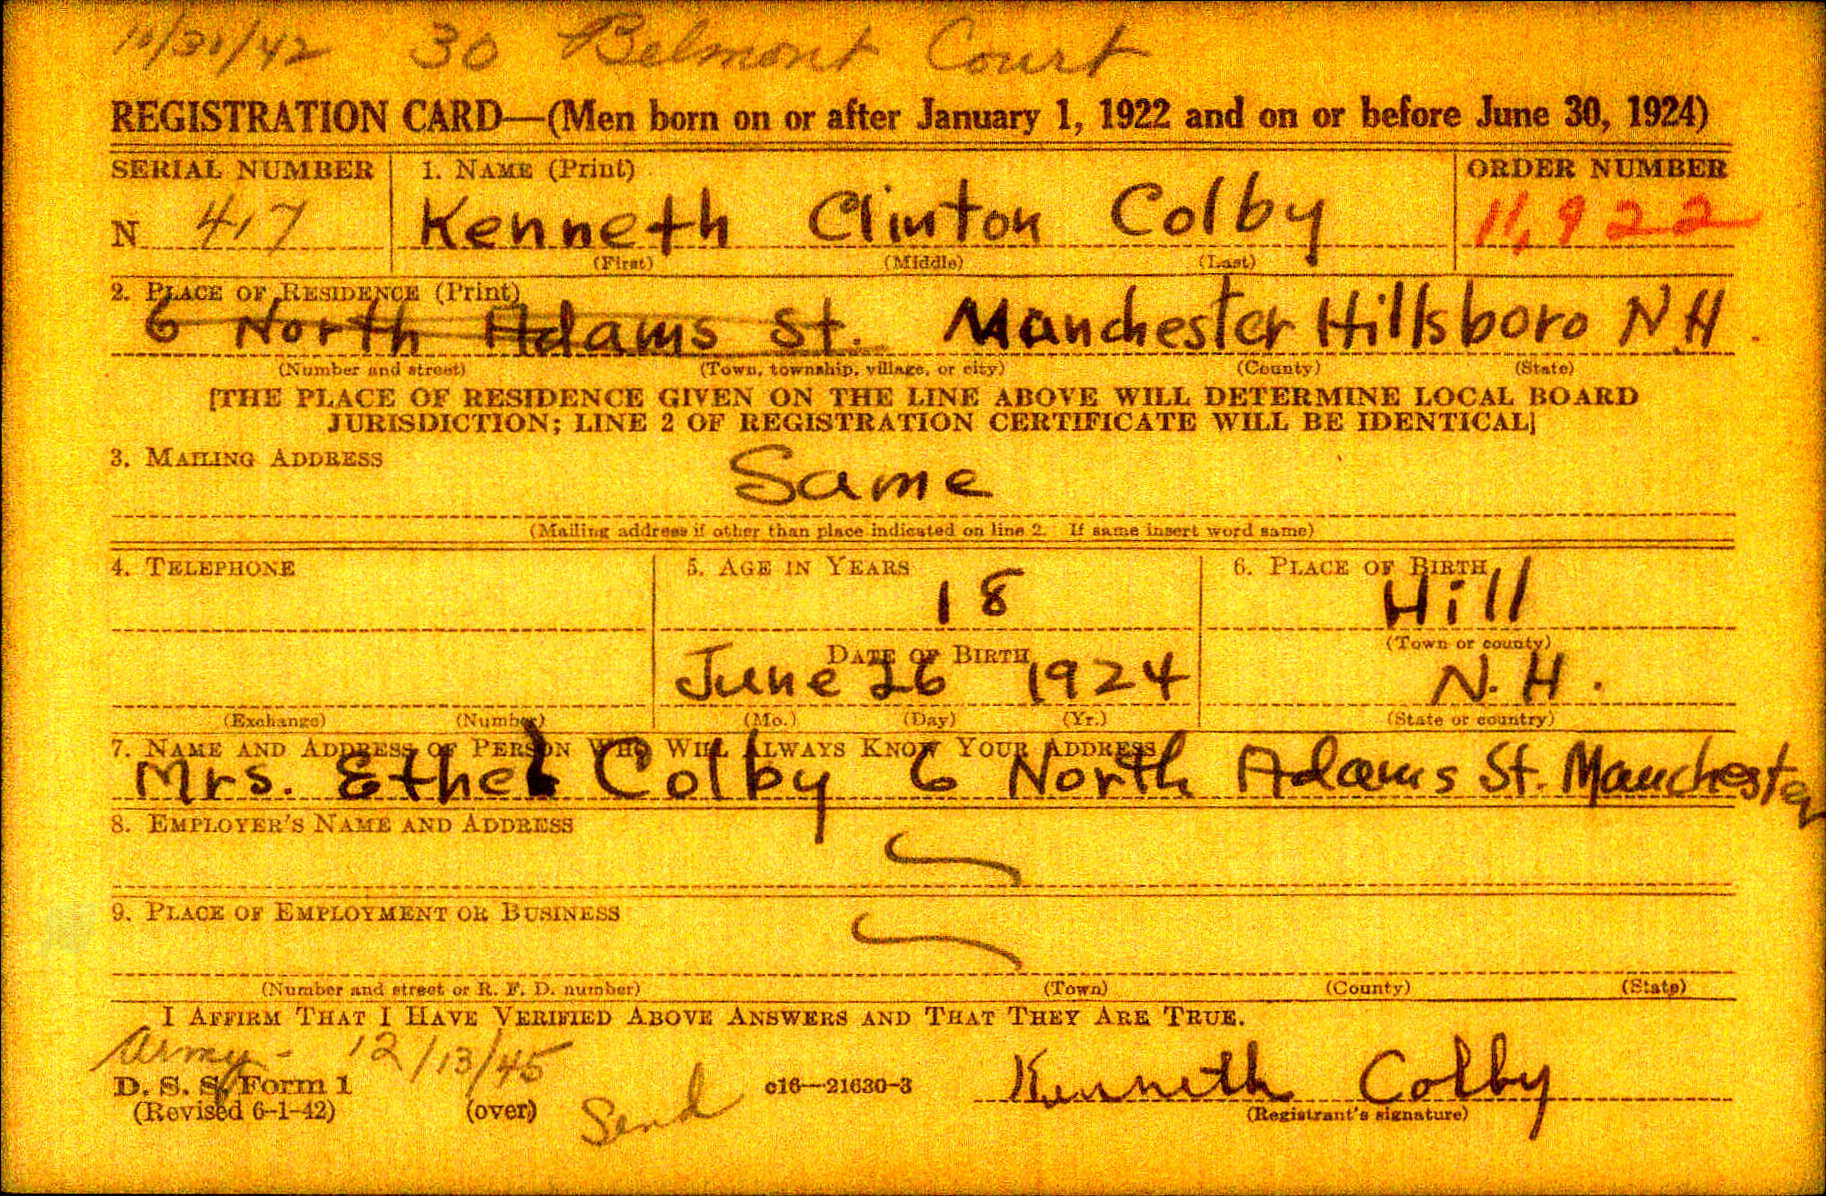 10/30/42 30 Belmont Court
REGISTRATION CARD—(Men born on or after January 1, 1922 and on or before June 30, 1924)
SERIAL NUMBER 1. NAME (Print) ORDER NUMBER
N 417 Kenneth Clinton Colby 11,922
(First) (Middle) (Last)
2. PLACE OF RESIDENCE (Print)
6 North Adams St. Manchester Hillsboro N.H.
(Number and street) (Town, township, village, or city) (County) (State)
[THE PLACE OF RESIDENCE GIVEN ON THE LINE ABOVE WILL DETERMINE LOCAL BOARD
JURISDICTION; LINE 2 OF REGISTRATION CERTIFICATE WILL BE IDENTICAL]
3. MAILING ADDRESS
Same
(Mailing address if other than place indicated on line 2. If same insert word same)
4. TELEPHONE 5. AGE IN YEARS 6. PLACE OF BIRTH
18 Hill
(Town or county)
DATE OF BIRTH
June 26 1924 N.H.
(Exchange) (Number) (Mo.) (Day) (Yr.) (State or country)
7. NAME AND ADDRESS OF PERSON WHO WILL ALWAYS KNOW YOUR ADDRESS
Mrs. Ethel Colby 6 North Adams St. Manchester
8. EMPLOYER'S NAME AND ADDRESS
9. PLACE OF EMPLOYMENT OR BUSINESS
(Number and street or R. F. D. number) (Town) (County) (State)
I AFFIRM THAT I HAVE VERIFIED ABOVE ANSWERS AND THAT THEY ARE TRUE.
Army - 12/13/45
D. S. S. Form 1 c16—21630-3 Kenneth Colby
(Revised 6-1-42) (over) Send (Registrant's signature)